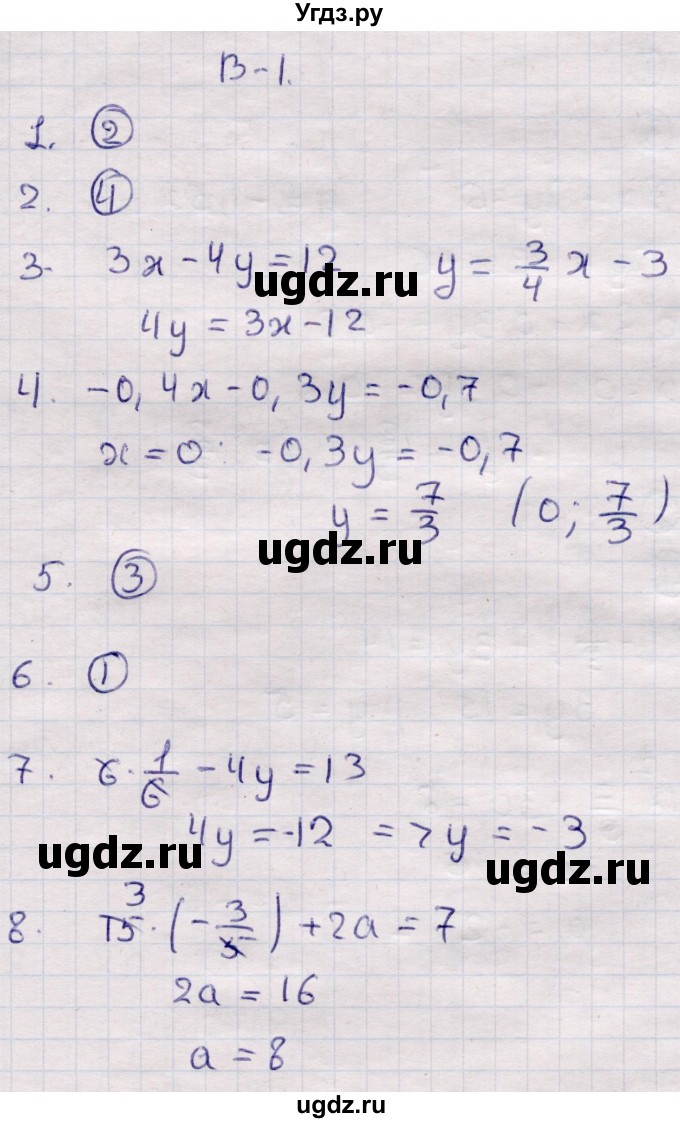 Угдз.ру
В-1.
1. ②
2. ④
3. 3x - 4y = 12 y = 3/4 x - 3
ugdz.ru
4y = 3x - 12
4. -0,4x - 0,3y = -0,7
x = 0: -0,3y = -0,7
y = 7/3 (0; 7/3)
ugdz.ru
5. ③
6. ①
7. 6 · 1/6 - 4y = 13
4y = -12 => y = -3
ugdz.ru
ugdz.ru
8. 15 3 · (-3/5) + 2a = 7
2a = 16
a = 8
ugdz.ru